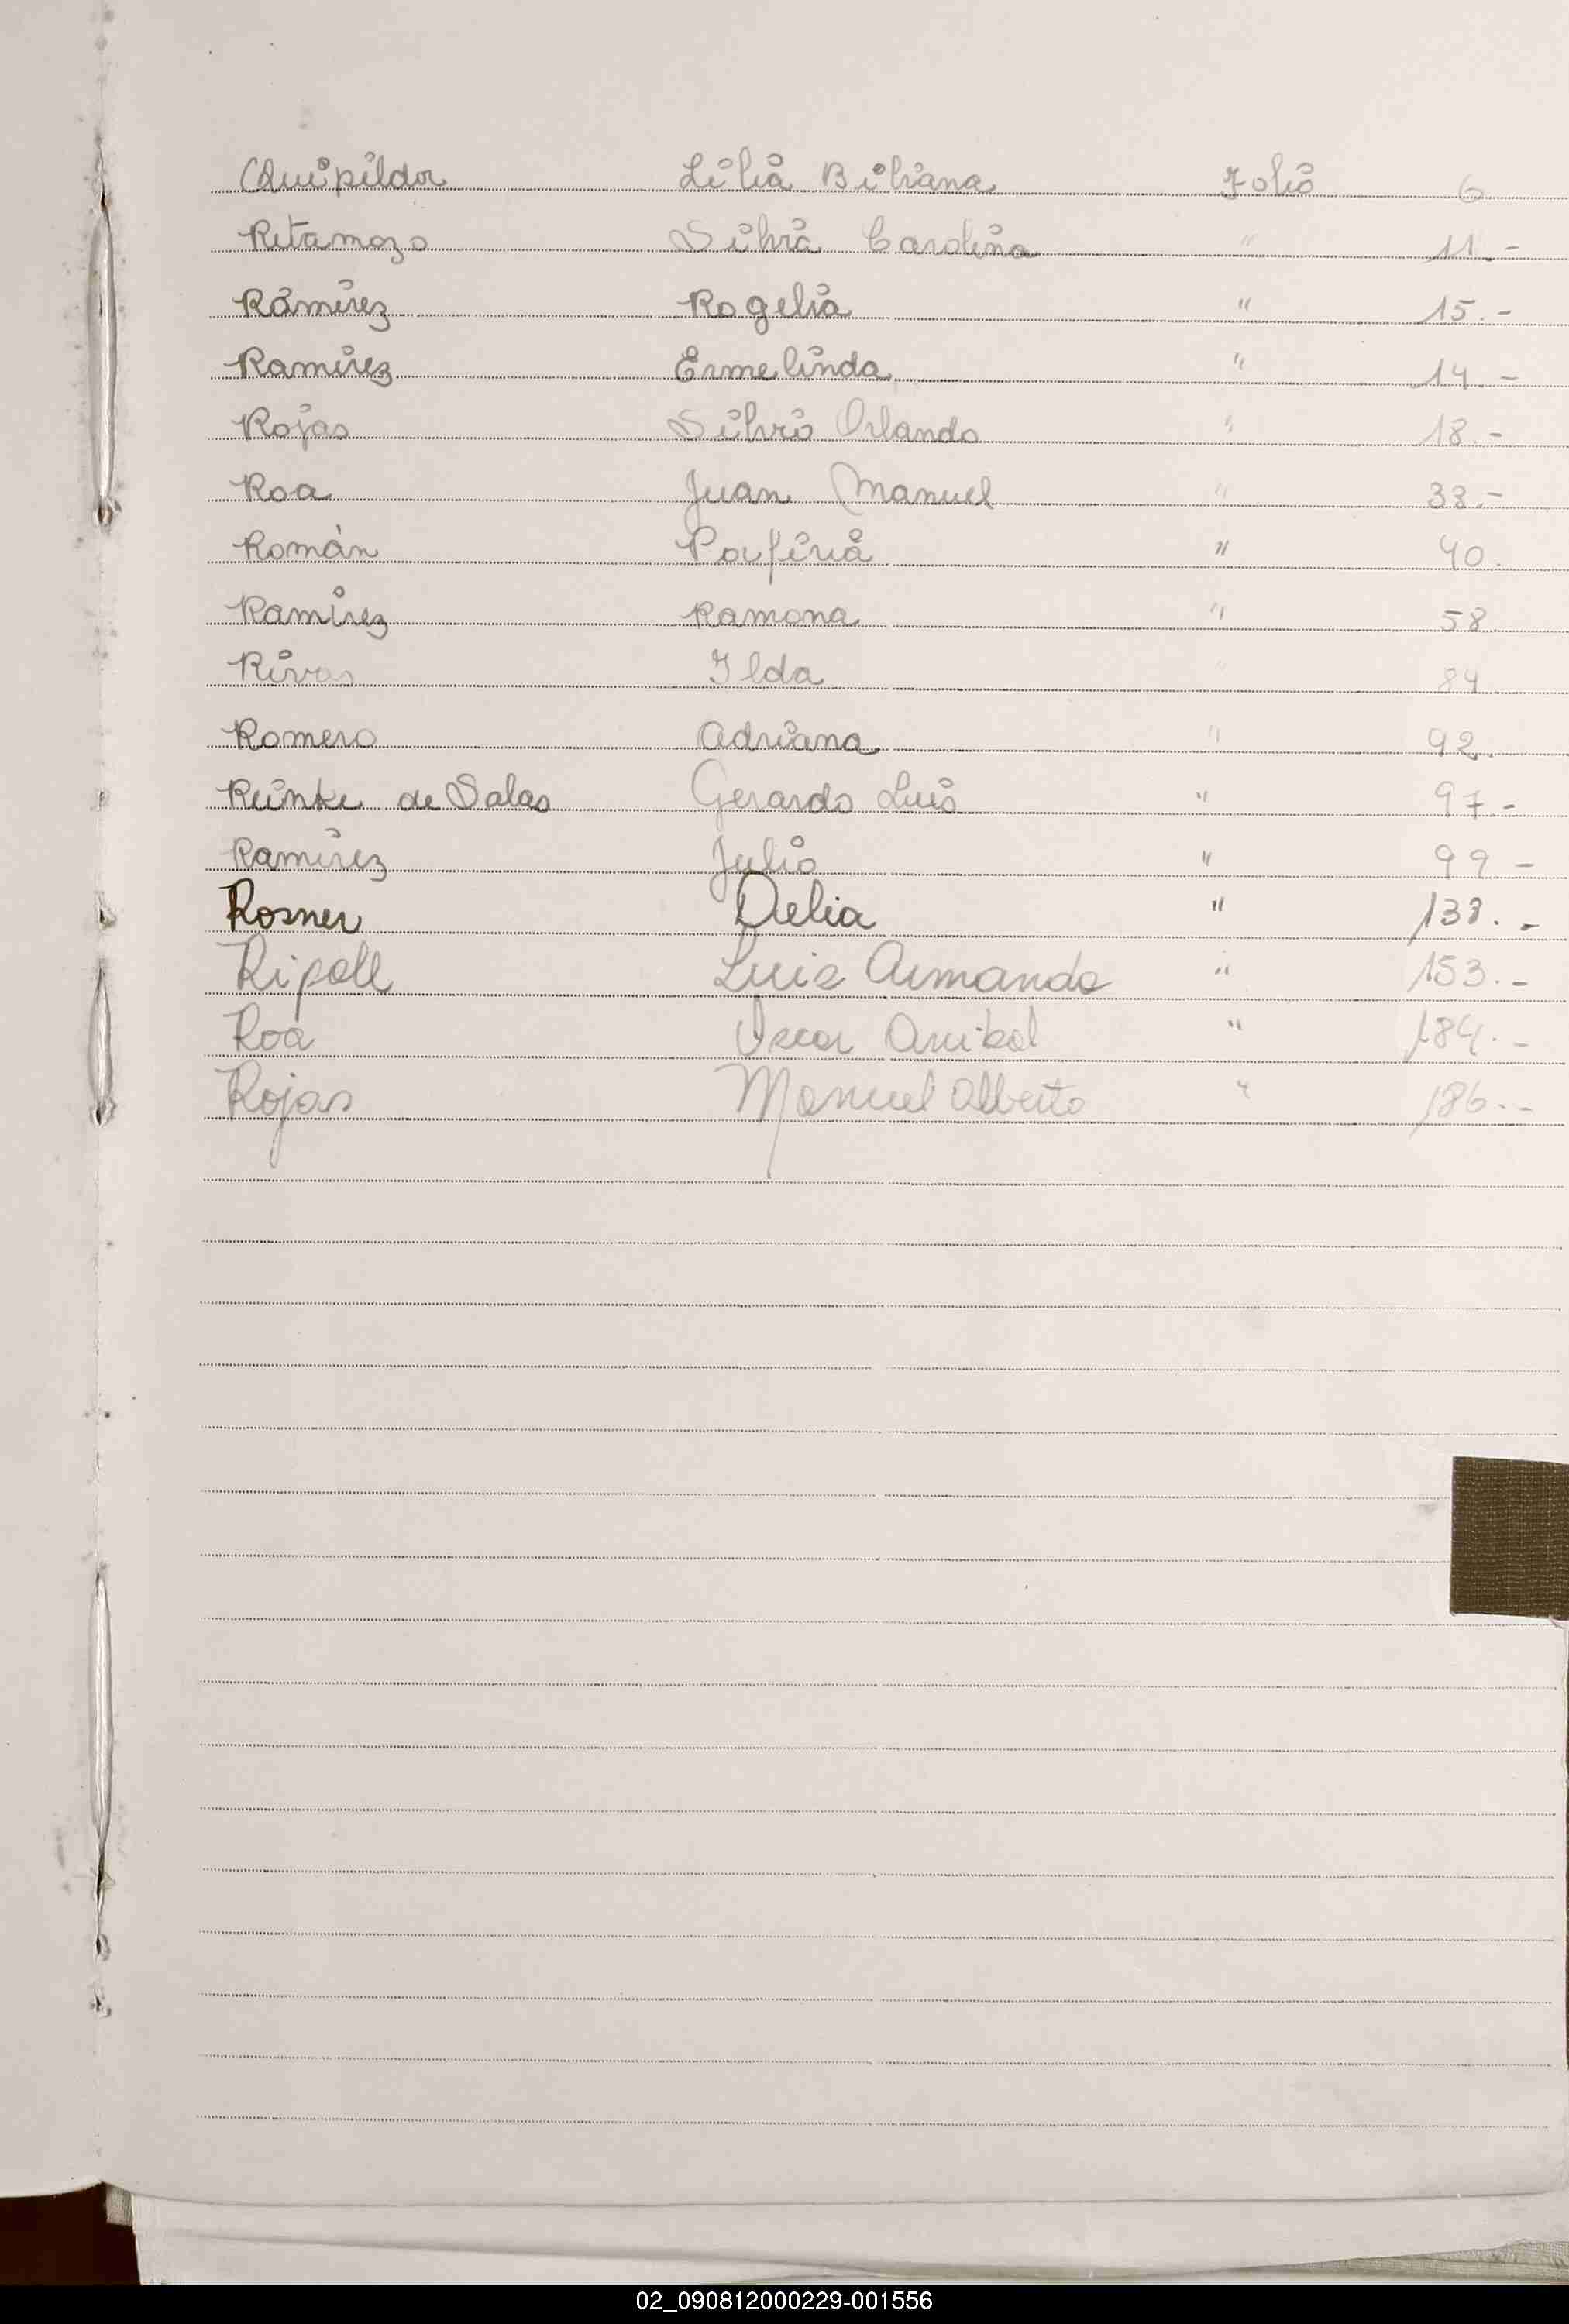 Quipildor Lilia Biliana Folio 6
Retamozo Silvia Carolina " 11.-
Ramirez Rogelia " 15.-
Ramirez Ermelinda " 14.-
Rojas Silvio Orlando " 18.-
Roa Juan Manuel " 33.-
Román Porfiria " 40.
Ramirez Ramona " 58.
Rivas Ilda " 84.
Romero Adriana " 92.
Reinke de Salas Gerardo Luis " 97.-
Ramirez Julio " 99-
Rosner Delia " 138.-
Ripoll Luis Armando " 153.-
Roa Oscar Anibal " 184.-
Rojas Manuel Alberto " 186.-
02_090812000229-001556